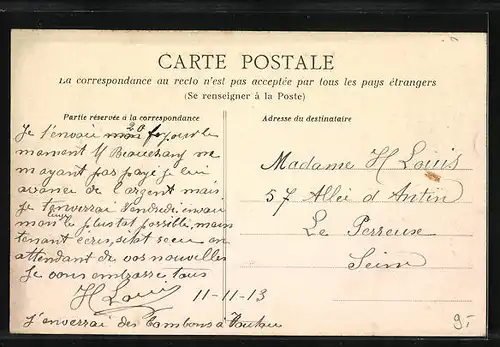 CARTE POSTALE
La correspondance au recto n'est pas acceptée par tous les pays étrangers
(Se renseigner à la Poste)
Partie réservée à la correspondance
Je t'envoie 20 f pour le
moment Mr ne
m'ayant pas payé je lui
avance de l'argent mais
je t'enverrai Vendredi envoie
mon linge le plus tot possible, main
tenant écris, sitot reçu en
attendant de vos nouvelles
Je vous embrasse tous
H Louis 11-11-13
J'enverrai des à
Adresse du destinataire
Madame H Louis
57 Allée d'Antin
Le Perreux
Seine
9.-